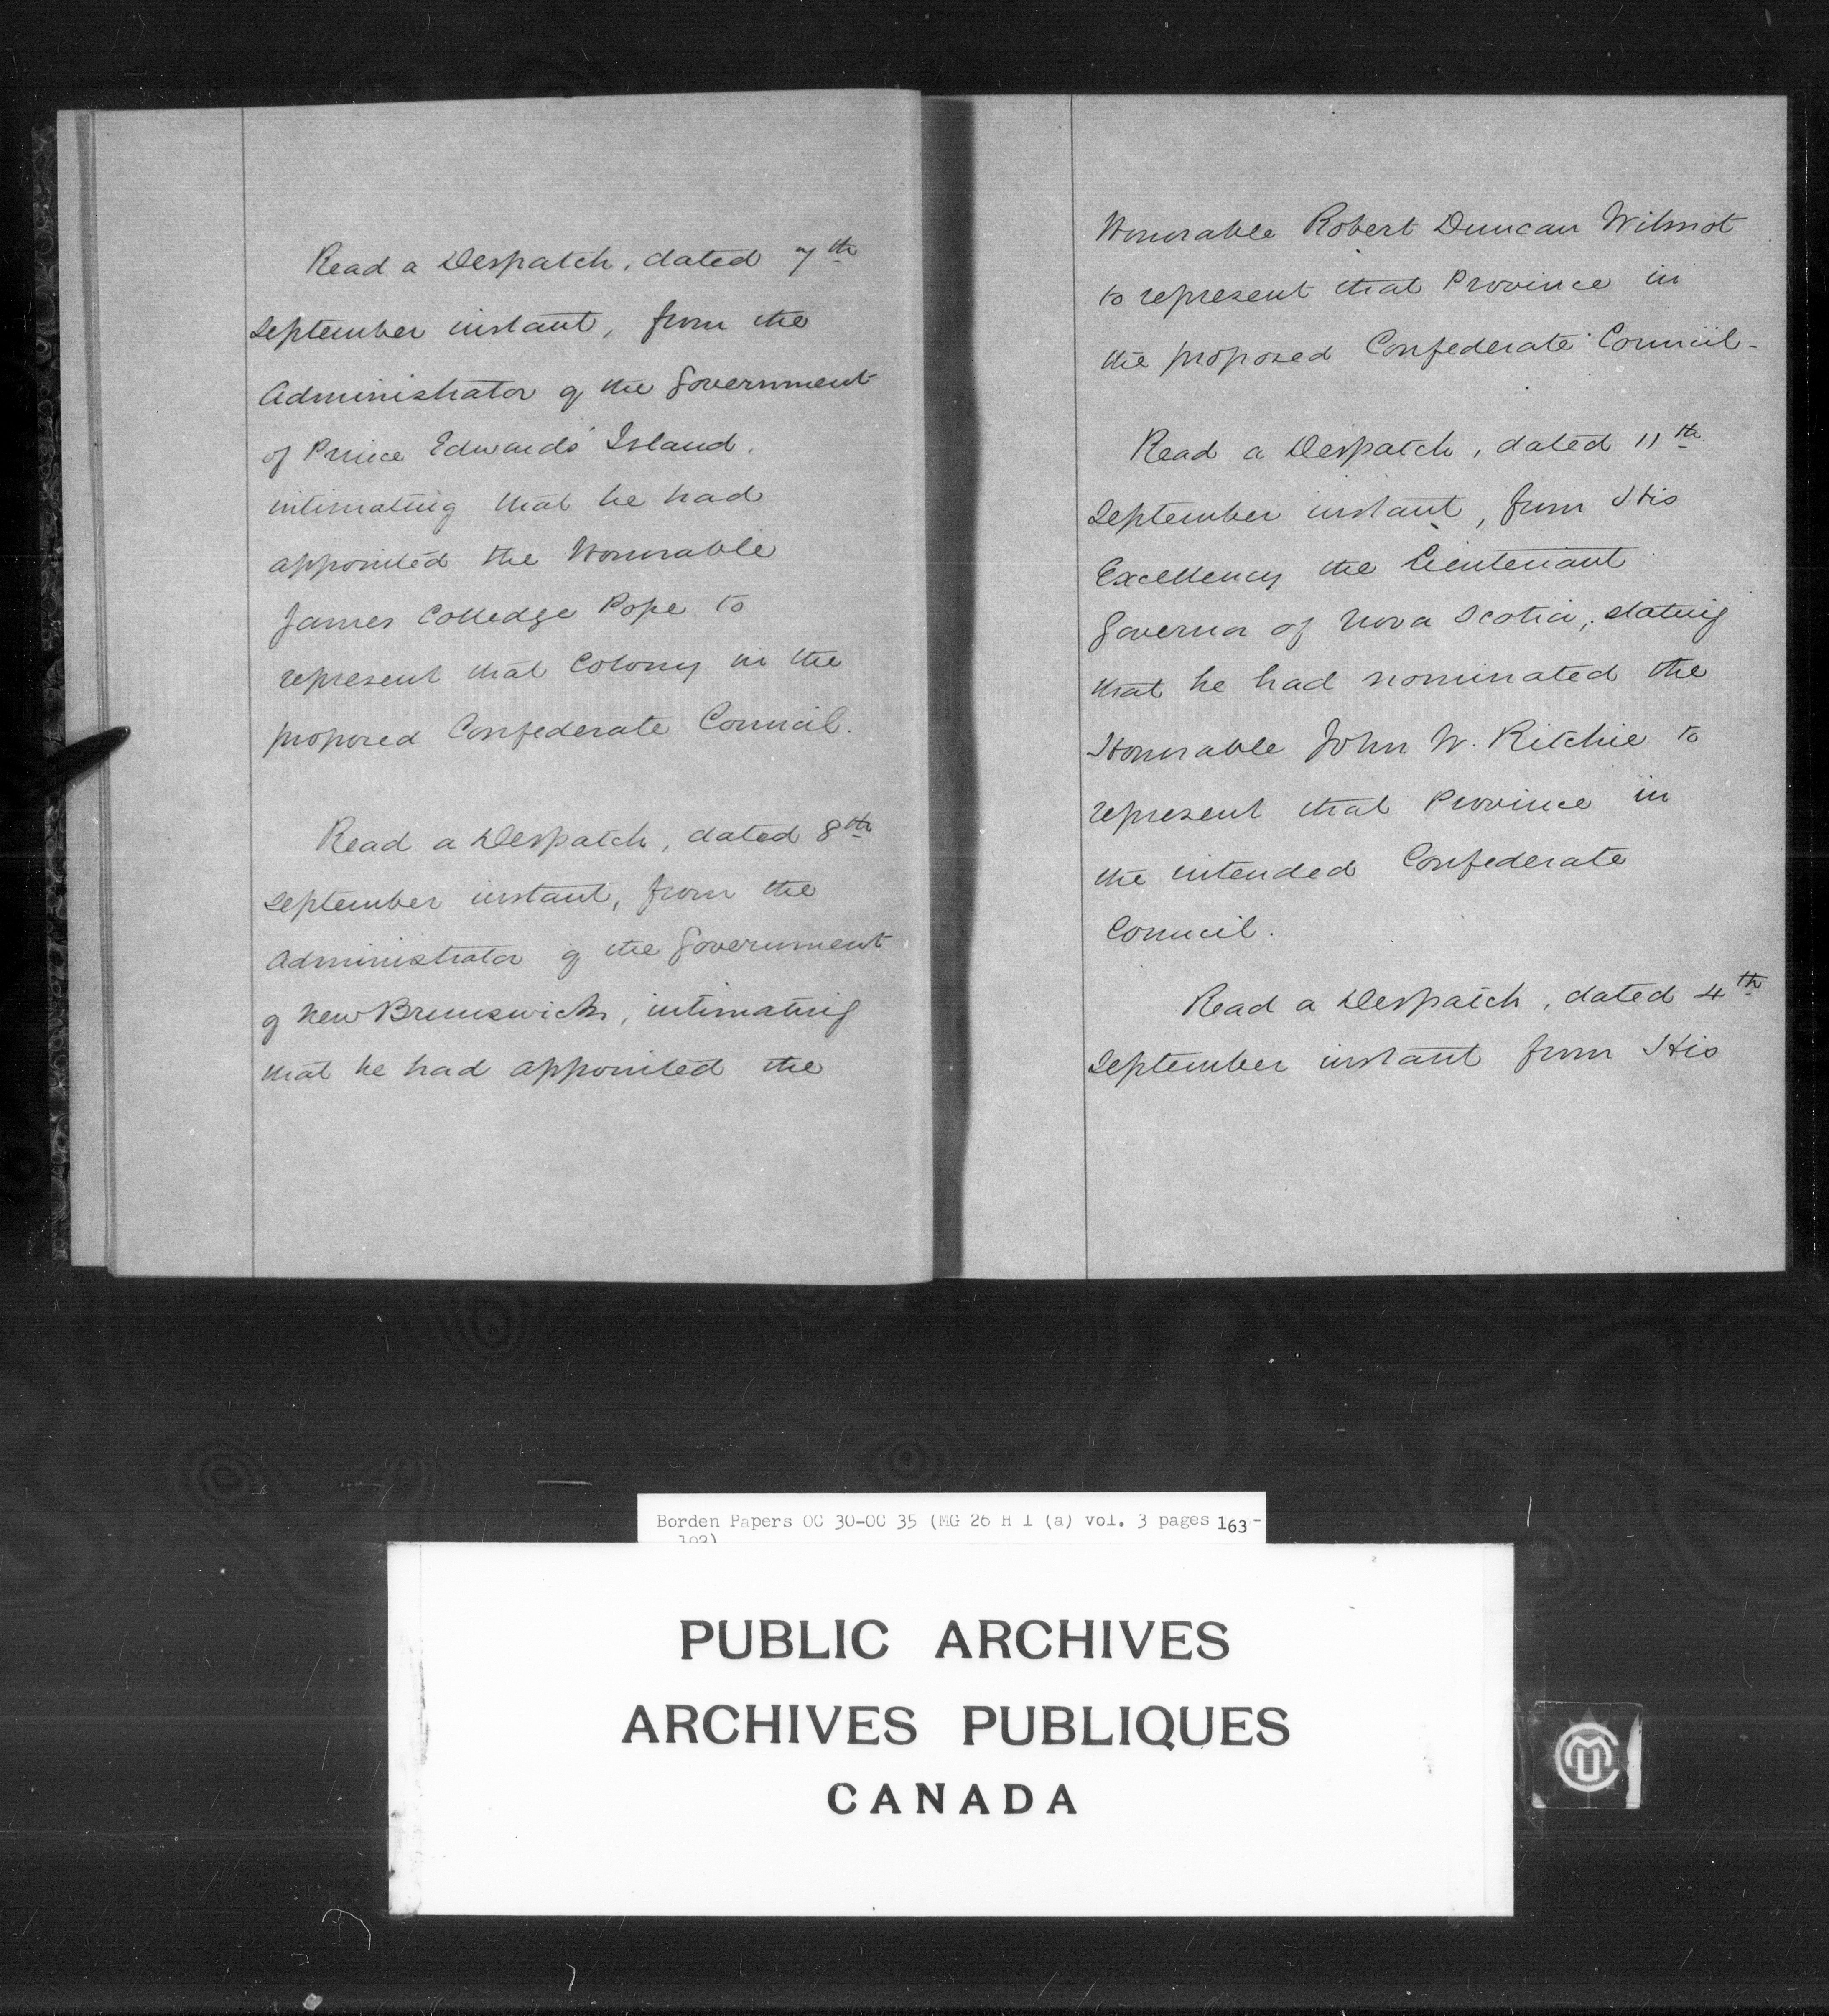 Read a Despatch, dated 7th
September instant, from the
Administrator of the Government
of Prince Edwards' Island,
intimating that he had
appointed the Honorable
James Colledge Pope to
represent that Colony in the
proposed Confederate Council.
Read a Despatch, dated 8th
September instant, from the
Administrator of the Government
of New Brunswick, intimating
that he had appointed the
Honorable Robert Duncan Wilmot
to represent that Province in
the proposed Confederate Council-
Read a Despatch, dated 11th
September instant, from His
Excellency the Lieutenant
Governor of Nova Scotia, stating
that he had nominated the
Honorable John W. Ritchie to
represent that Province in
the intended Confederate
Council.
Read a Despatch, dated 4th
September instant from His
Borden Papers OC 30-OC 35 (MG 26 H 1 (a) vol. 3 pages 163-
PUBLIC ARCHIVES
ARCHIVES PUBLIQUES
CANADA